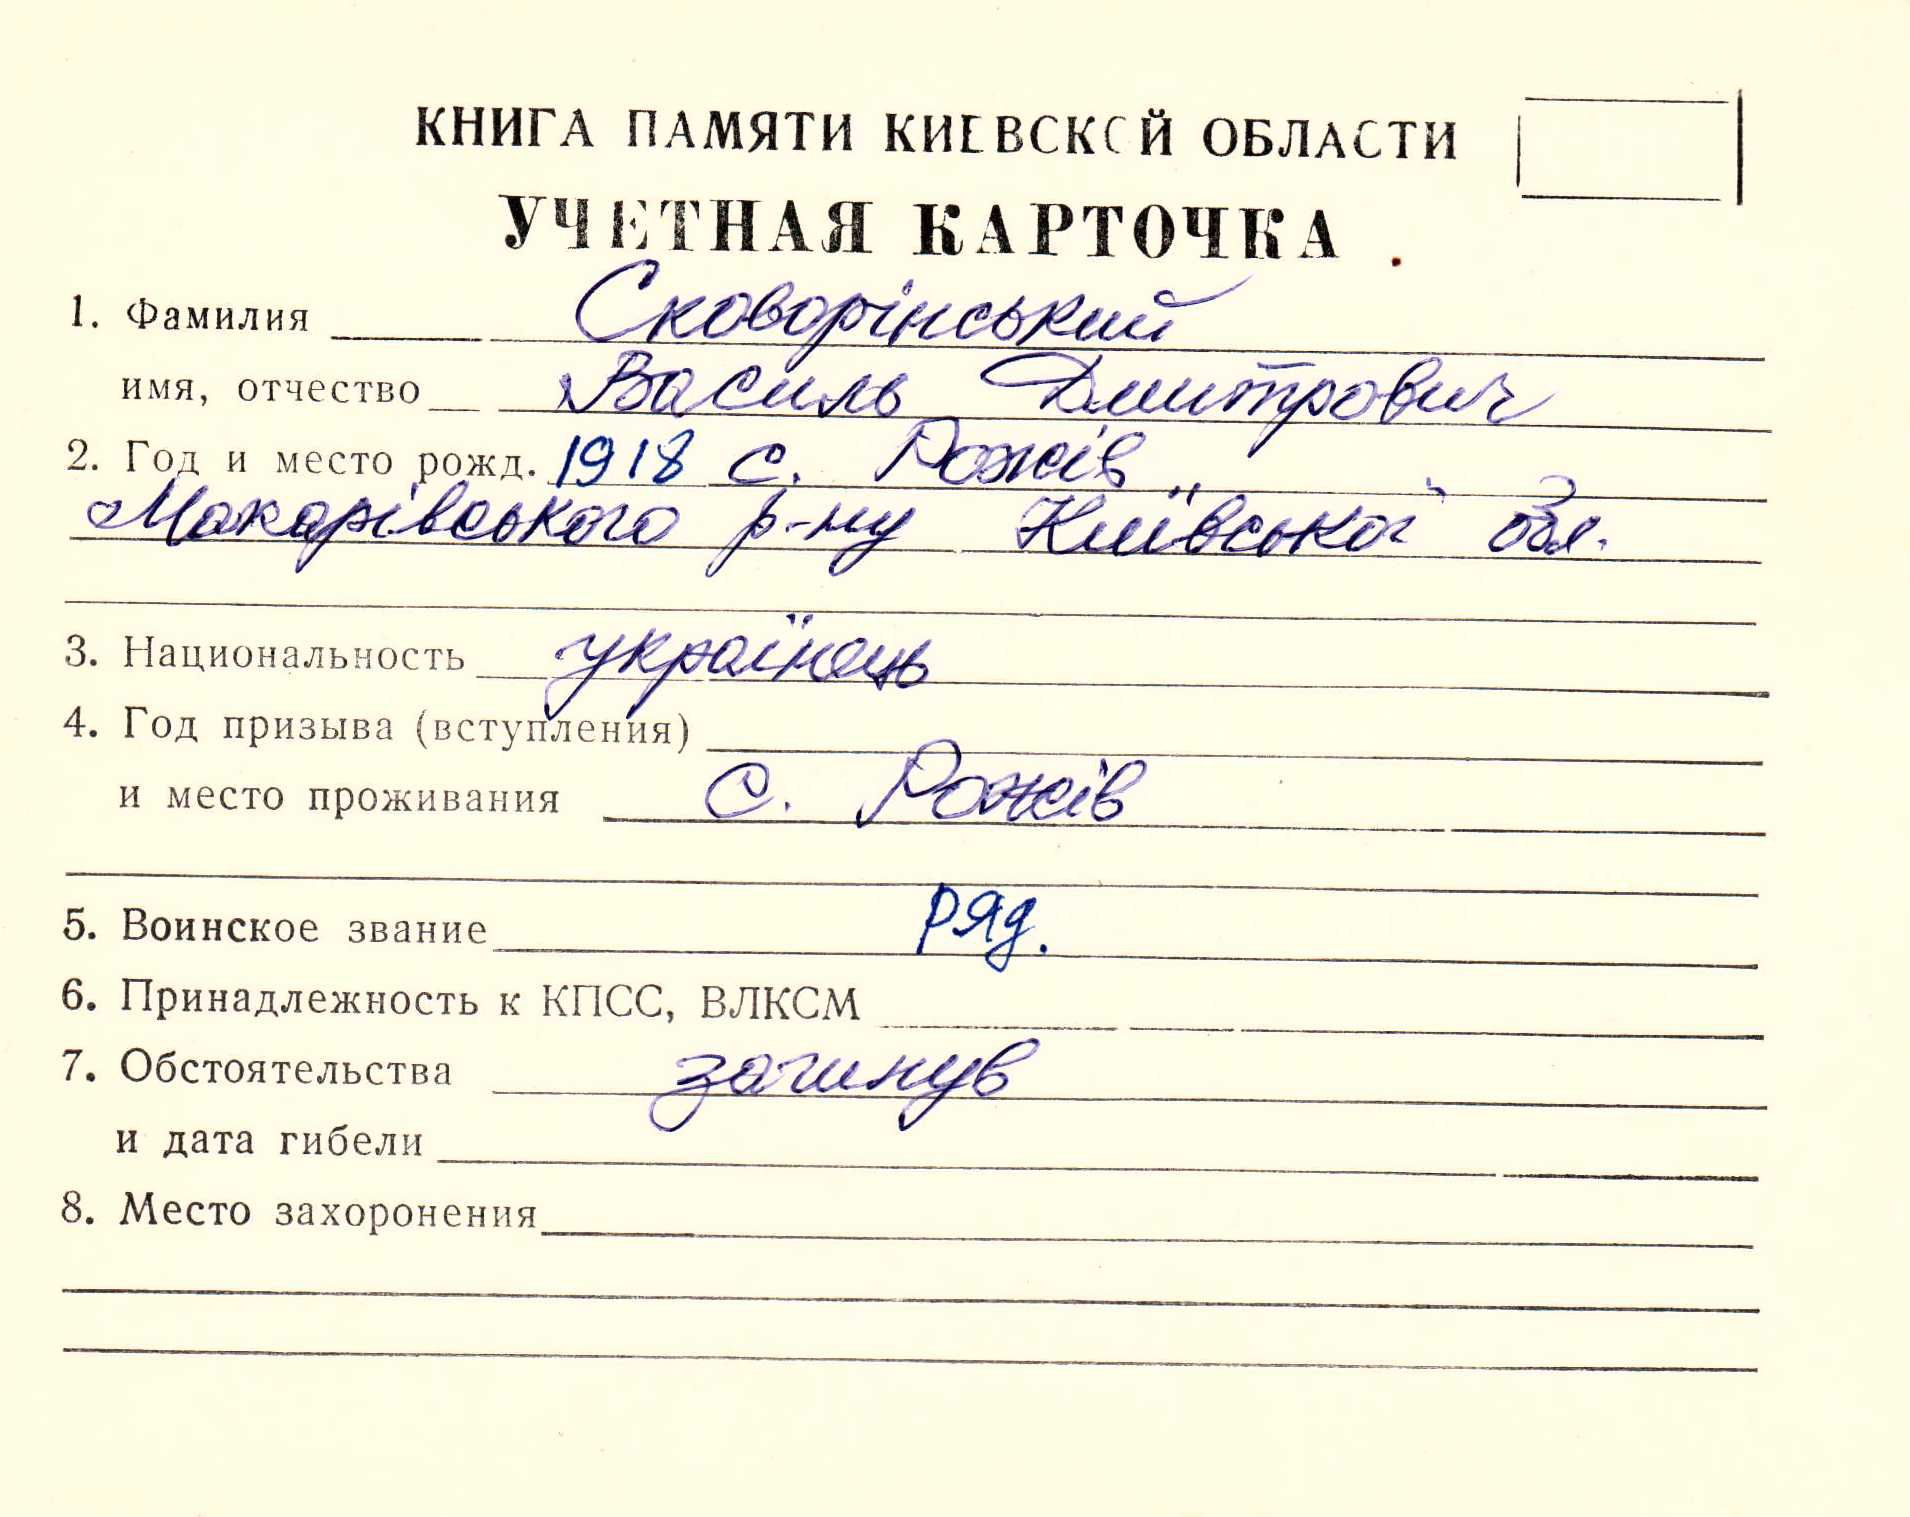 КНИГА ПАМЯТИ КИЕВСКОЙ ОБЛАСТИ
УЧЕТНАЯ КАРТОЧКА
1. Фамилия Сковорінський
имя, отчество Василь Дмитрович
2. Год и место рожд. 1918 с. Рожів
Макарівського р-ну Київської обл.
3. Национальность українець
4. Год призыва (вступления)
и место проживания с. Рожів
5. Воинское звание ряд.
6. Принадлежность к КПСС, ВЛКСМ
7. Обстоятельства загинув
и дата гибели
8. Место захоронения